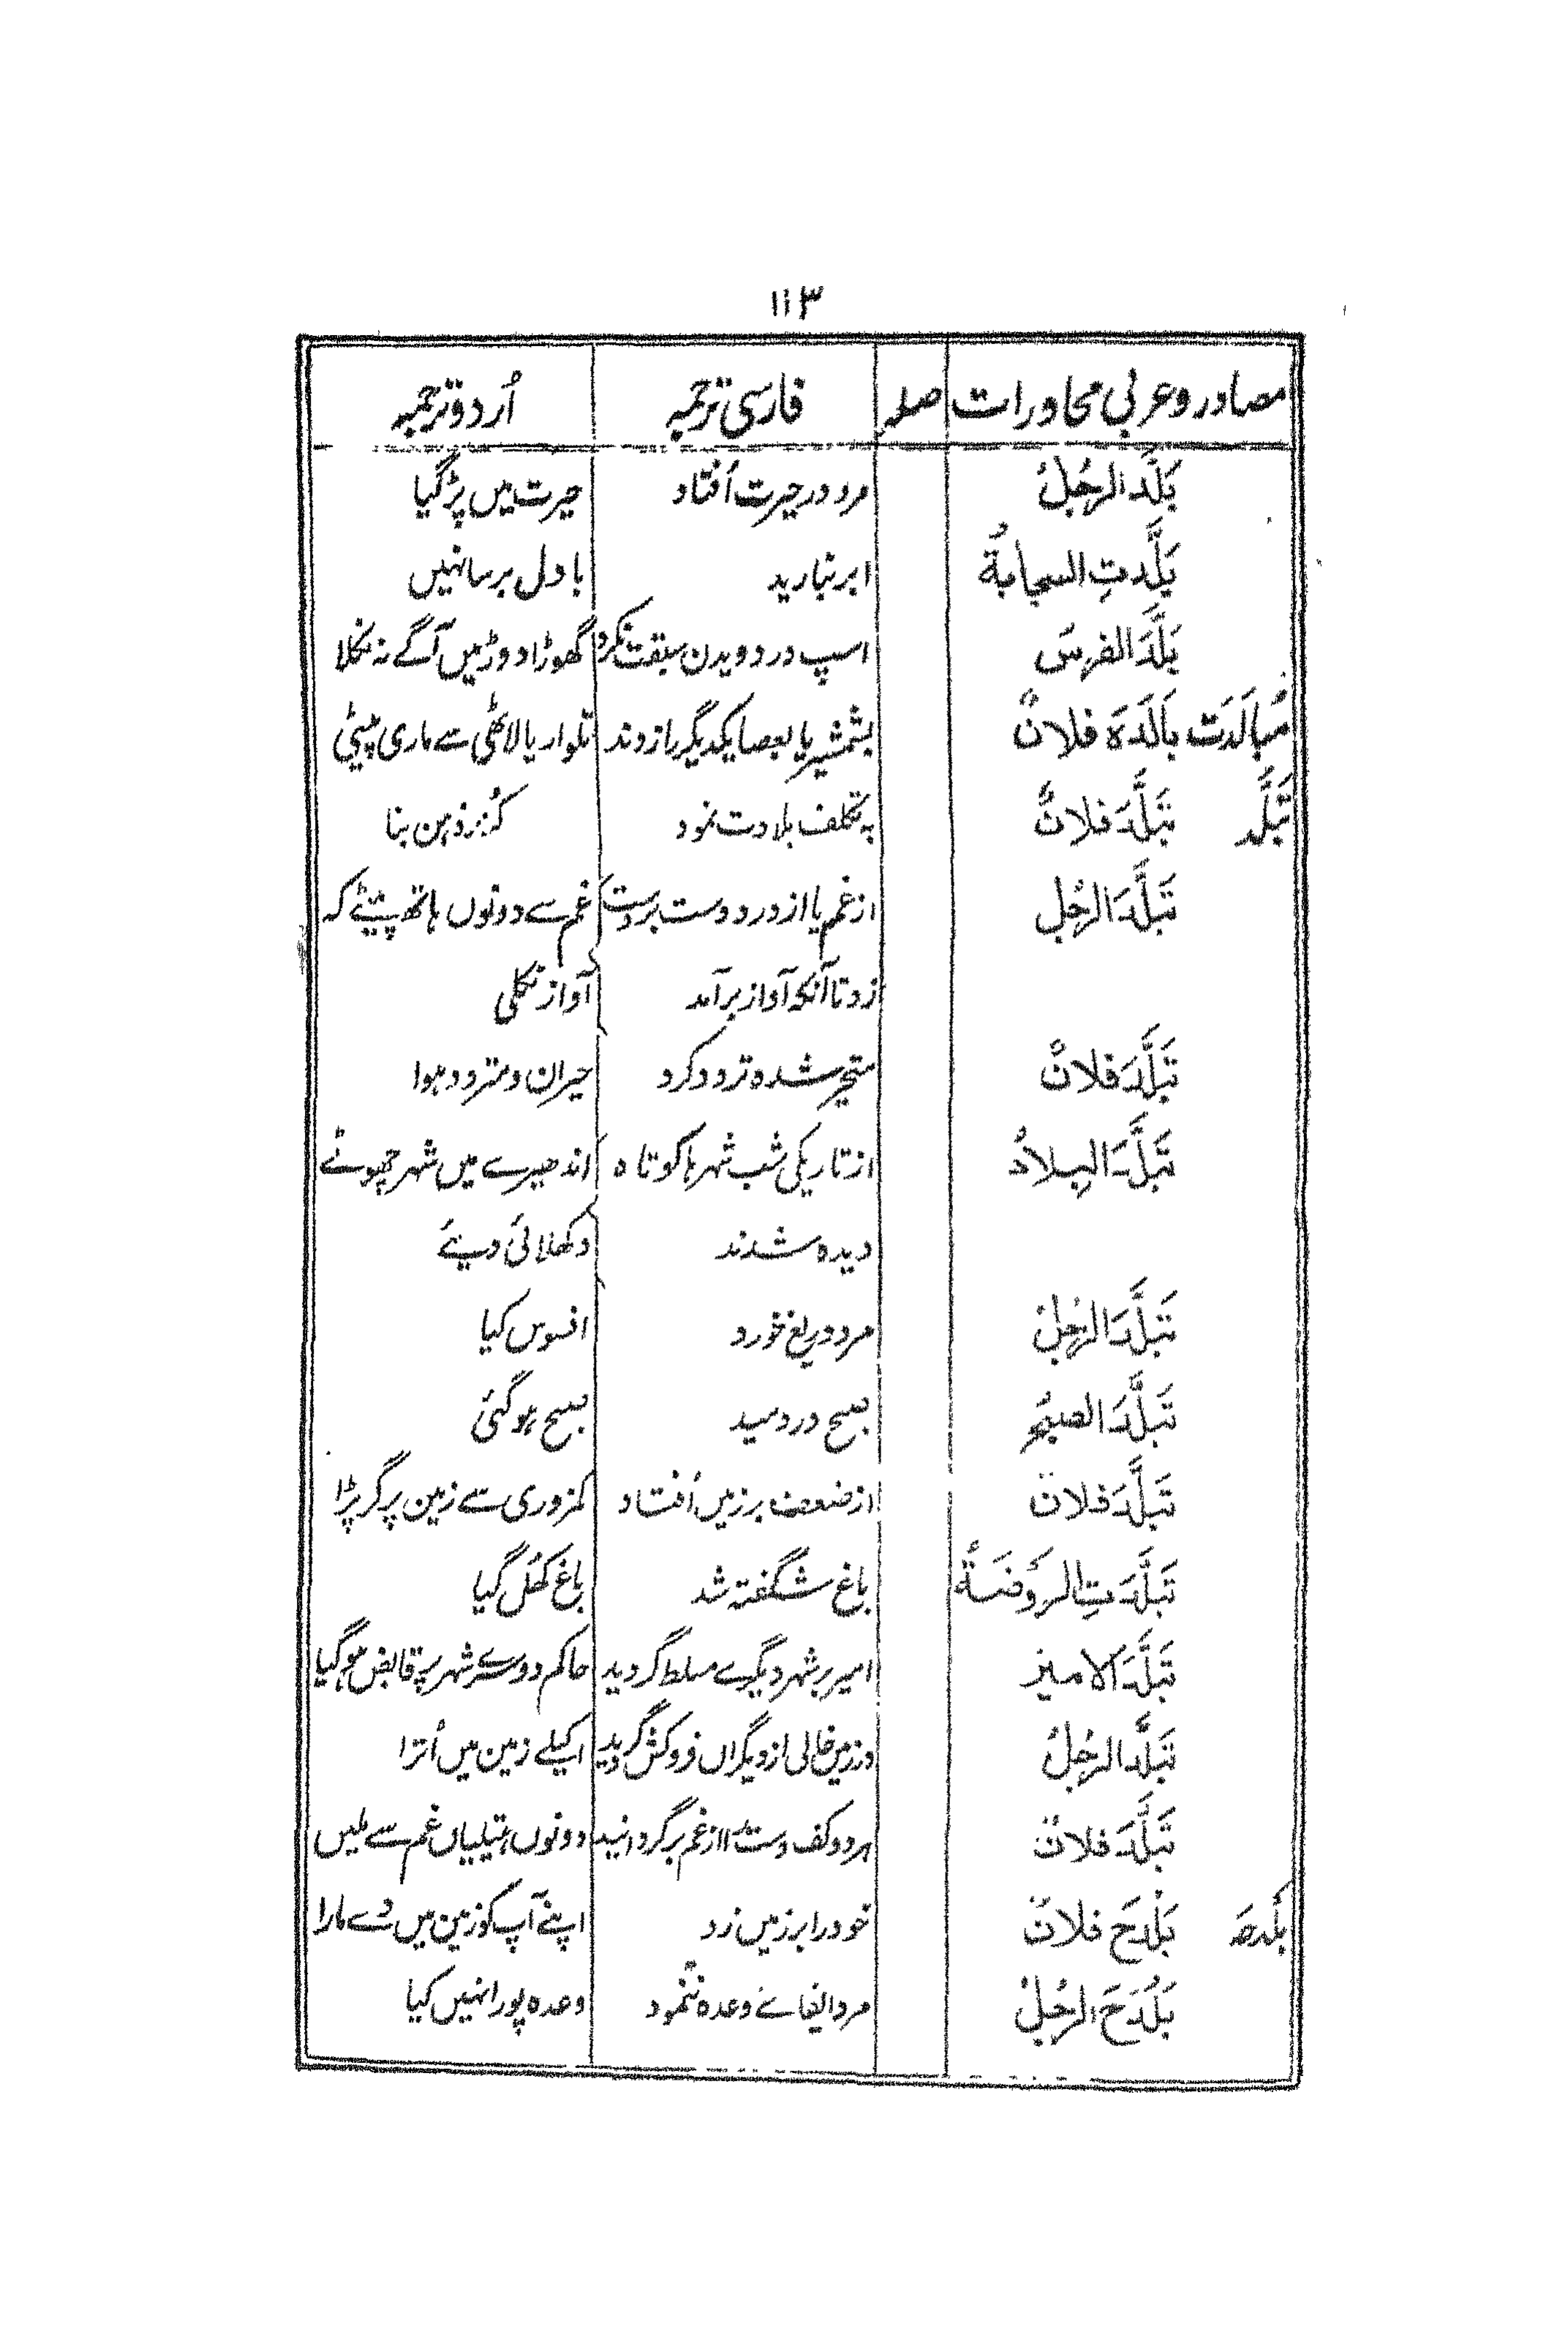 ۱۱۳
مصادر و عربی محاورات صلہ فارسی ترجمہ اُردو ترجمہ
بَلَّدَ الرجُلُ مرد در حیرت اُفتاد حیرت میں پڑ گیا
بَلَّدتِ السحابةُ ابر نبارید بادل برسا نہیں
بَلَّدَ الفرسُ اسپ در دویدن سبقت نکرد گھوڑا دوڑ میں آگے نہ نکلا
مُبالَدَت بَالَدَهَ فلانٌ بشمشیر یا بعصا یکدیگر را زدند تلوار یا لاٹھی سے ماری پیٹی
تَبَلُّد تَبَلَّدَ فلانٌ بہ تکلف بلادت نمود کُند ذہن بنا
تَبَلَّدَ الرجُل از غم یا از درد دست بر دست غم سے دونوں ہاتھ پیٹے کہ
زد تا آنکہ آواز برآمد آواز نکلی
تَبَلَّدَ فلانٌ متحیر شدہ تردد کرد حیران و متردد ہوا
تَبَلَّدَ البِلادُ از تاریکی شب شہرہا کوتاہ اندھیرے میں شہر چھوٹے
دیدہ شدند دکھلائی دیئے
تَبَلَّدَ الرجُلُ مرد دریغ خورد افسوس کیا
تَبَلَّدَ الصبحُ صبح در دمید صبح ہو گئی
تَبَلَّدَ فلانٌ از ضعف بر زمیں اُفتاد کمزوری سے زمین پر گر پڑا
تَبَلَّدَتِ الرَوضَةُ باغ شگفتہ شد باغ کھُل گیا
تَبَلَّدَ الامیرُ امیر بر شہر دیگرے مسلط گردید حاکم دوسرے شہر پر قابض ہو گیا
تَبَلَّدَ الرجُلُ در زمیں خالی از دیگراں فروکش گردید اکیلے زمین میں اُترا
تَبَلَّدَ فلانٌ ہر دو کف دست را از غم برگردانید دونوں ہتیلیاں غم سے ملیں
بَلْدحَہ بَلْدَحَ فلانٌ خود را بر زمیں زد اپنے آپ کو زمین میں دے مارا
بَلْدَحَ الرجُلُ مرد ایفائے وعدہ ننمود وعدہ پورا نہیں کیا